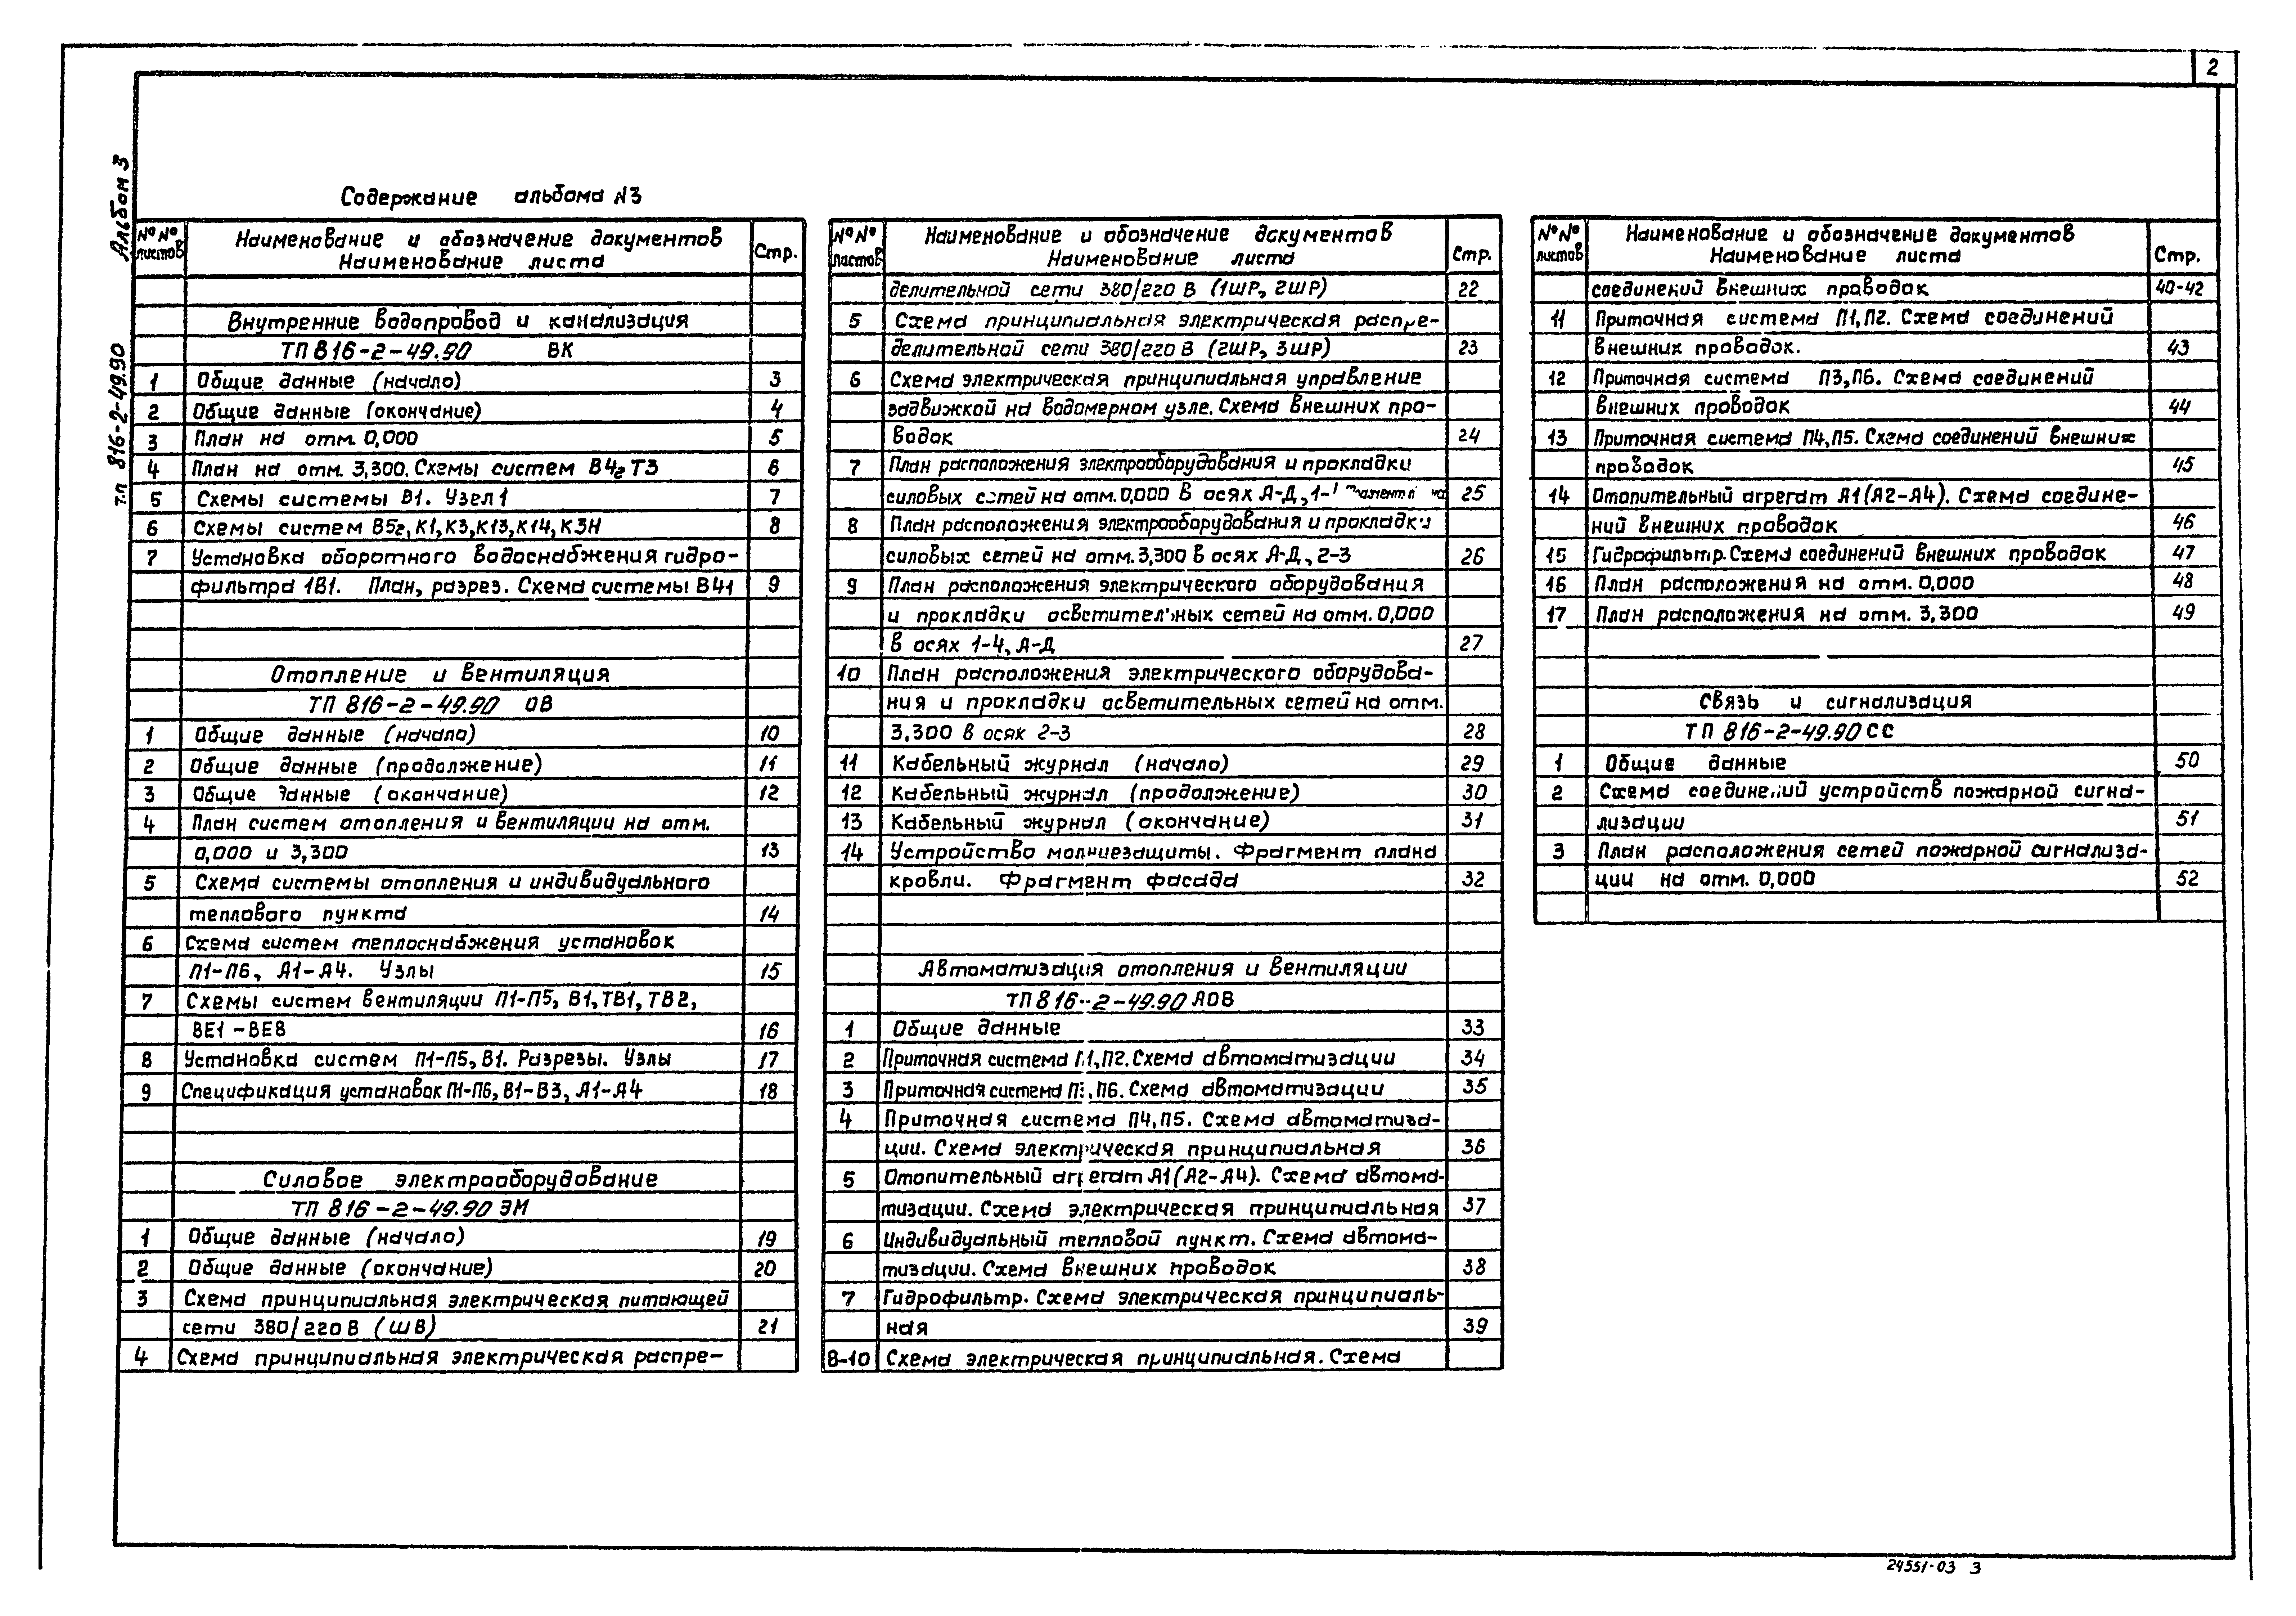 2
Альбом 3
т.п 816-2-49.90
Содержание альбома N3
№№ листов Наименование и обозначение документов Наименование листа Стр.
Внутренние водопровод и канализация
ТП 816-2-49.90 ВК
1 Общие данные (начало) 3
2 Общие данные (окончание) 4
3 План на отм. 0,000 5
4 План на отм. 3,300. Схемы систем В4г Т3 6
5 Схемы системы В1. Узел 1 7
6 Схемы систем В5г, К1, К3, К13, К14, К3Н 8
7 Установка оборотного водоснабжения гидро-
фильтра 1В1. План, разрез. Схема системы В41 9
Отопление и вентиляция
ТП 816-2-49.90 ОВ
1 Общие данные (начало) 10
2 Общие данные (продолжение) 11
3 Общие данные (окончание) 12
4 План систем отопления и вентиляции на отм.
0,000 и 3,300 13
5 Схема системы отопления и индивидуального
теплового пункта 14
6 Схема систем теплоснабжения установок
П1-П6, А1-А4. Узлы 15
7 Схемы систем вентиляции П1-П5, В1, ТВ1, ТВ2,
ВЕ1-ВЕ8 16
8 Установка систем П1-П5, В1. Разрезы. Узлы 17
9 Спецификация установок П1-П6, В1-В3, А1-А4 18
Силовое электрооборудование
ТП 816-2-49.90 ЭМ
1 Общие данные (начало) 19
2 Общие данные (окончание) 20
3 Схема принципиальная электрическая питающей
сети 380/220 В (ШВ) 21
4 Схема принципиальная электрическая распре-
№№ листов Наименование и обозначение документов Наименование листа Стр.
делительной сети 380/220 В (1ШР, 2ШР) 22
5 Схема принципиальная электрическая распре-
делительной сети 380/220 В (2ШР, 3ШР) 23
6 Схема электрическая принципиальная управление
задвижкой на водомерном узле. Схема внешних про-
водок 24
7 План расположения электрооборудования и прокладки
силовых сетей на отм. 0,000 в осях А-Д, 25
8 План расположения электрооборудования и прокладки
силовых сетей на отм. 3,300 в осях А-Д, 2-3 26
9 План расположения электрического оборудования
и прокладки осветительных сетей на отм. 0,000
в осях 1-4, А-Д 27
10 План расположения электрического оборудова-
ния и прокладки осветительных сетей на отм.
3,300 в осях 2-3 28
11 Кабельный журнал (начало) 29
12 Кабельный журнал (продолжение) 30
13 Кабельный журнал (окончание) 31
14 Устройство молниезащиты. Фрагмент плана
кровли. Фрагмент фасада 32
Автоматизация отопления и вентиляции
ТП 816-2-49.90 АОВ
1 Общие данные 33
2 Приточная система П1, П2. Схема автоматизации 34
3 Приточная система П3, П6. Схема автоматизации 35
4 Приточная система П4, П5. Схема автоматиза-
ции. Схема электрическая принципиальная 36
5 Отопительный агрегат А1 (А2-А4). Схема автома-
тизации. Схема электрическая принципиальная 37
6 Индивидуальный тепловой пункт. Схема автома-
тизации. Схема внешних проводок 38
7 Гидрофильтр. Схема электрическая принципиаль-
ная 39
8-10 Схема электрическая принципиальная. Схема
№№ листов Наименование и обозначение документов Наименование листа Стр.
соединений внешних проводок 40-42
11 Приточная система П1, П2. Схема соединений
внешних проводок. 43
12 Приточная система П3, П6. Схема соединений
внешних проводок 44
13 Приточная система П4, П5. Схема соединений внешних
проводок 45
14 Отопительный агрегат А1 (А2-А4). Схема соедине-
ний внешних проводок 46
15 Гидрофильтр. Схема соединений внешних проводок 47
16 План расположения на отм. 0,000 48
17 План расположения на отм. 3,300 49
Связь и сигнализация
ТП 816-2-49.90 СС
1 Общие данные 50
2 Схема соединений устройств пожарной сигна-
лизации 51
3 План расположения сетей пожарной сигнализа-
ции на отм. 0,000 52
24551-03 3